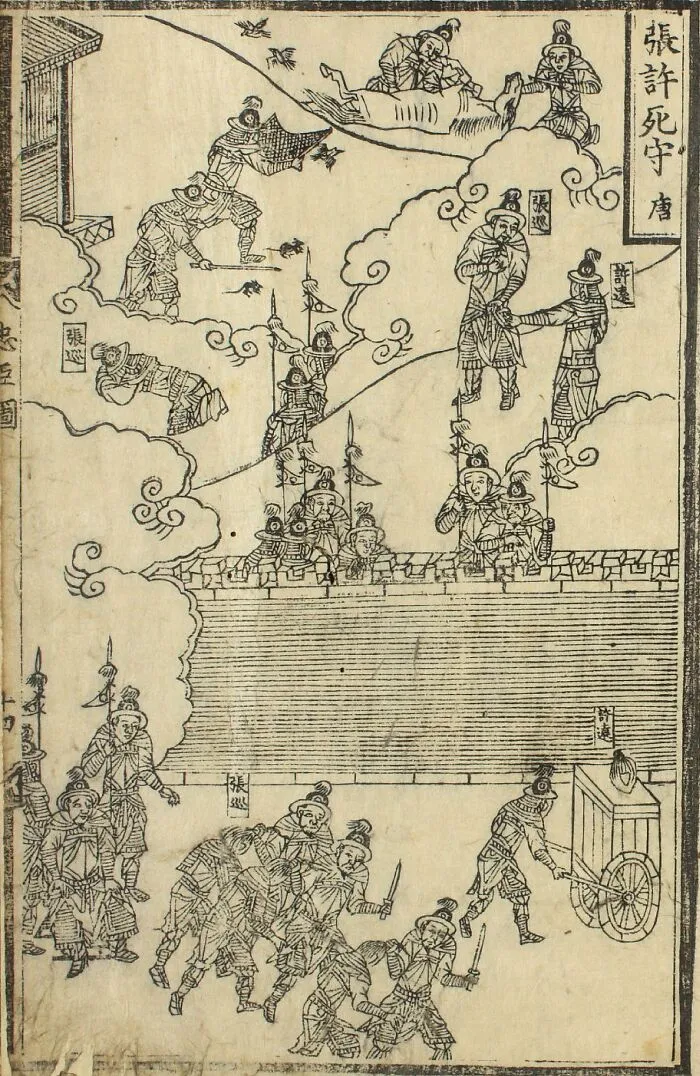 張許死守 唐
張巡
許遠
張巡
忠臣圖
十四
許遠
張巡